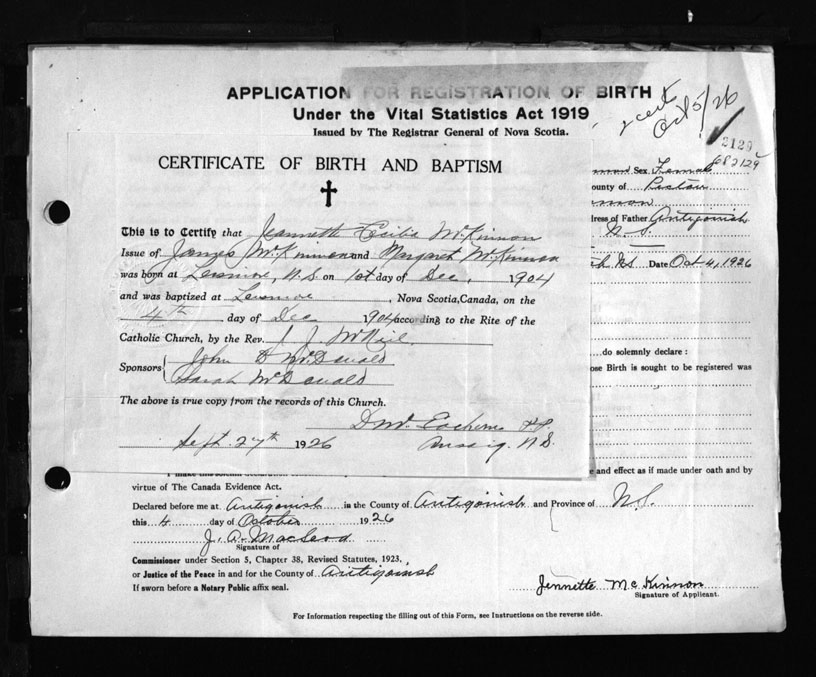 APPLICATION FOR REGISTRATION OF BIRTH
Under the Vital Statistics Act 1919
Issued by The Registrar General of Nova Scotia.
Oct 5/26
2129
CERTIFICATE OF BIRTH AND BAPTISM
This is to Certify that Jeannette Cecilia McKinnon
Issue of James McKinnon and Margaret McKinnon
was born at , N.S. on 1st day of Dec, 1904
and was baptized at , Nova Scotia, Canada, on the
4th day of Dec 1904 according to the Rite of the
Catholic Church, by the Rev. J. J. McNeil
Sponsors { John D McDonald
Sarah McDonald
The above is true copy from the records of this Church.
P.P.
Sept. 27th 1926 N.S.
Sex Female
ounty of Pictou
ress of Father Antigonish
N.S.
N.S. Date Oct 4, 1926
do solemnly declare :
ose Birth is sought to be registered was
and effect as if made under oath and by
virtue of The Canada Evidence Act.
Declared before me at Antigonish in the County of Antigonish and Province of N.S.
this 4 day of October 1926
J. A. MacLeod
Signature of
Commissioner under Section 5, Chapter 38, Revised Statutes, 1923.
or Justice of the Peace in and for the County of Antigonish
If sworn before a Notary Public affix seal.
Jennette McKinnon
Signature of Applicant.
For Information respecting the filling out of this Form, see Instructions on the reverse side.